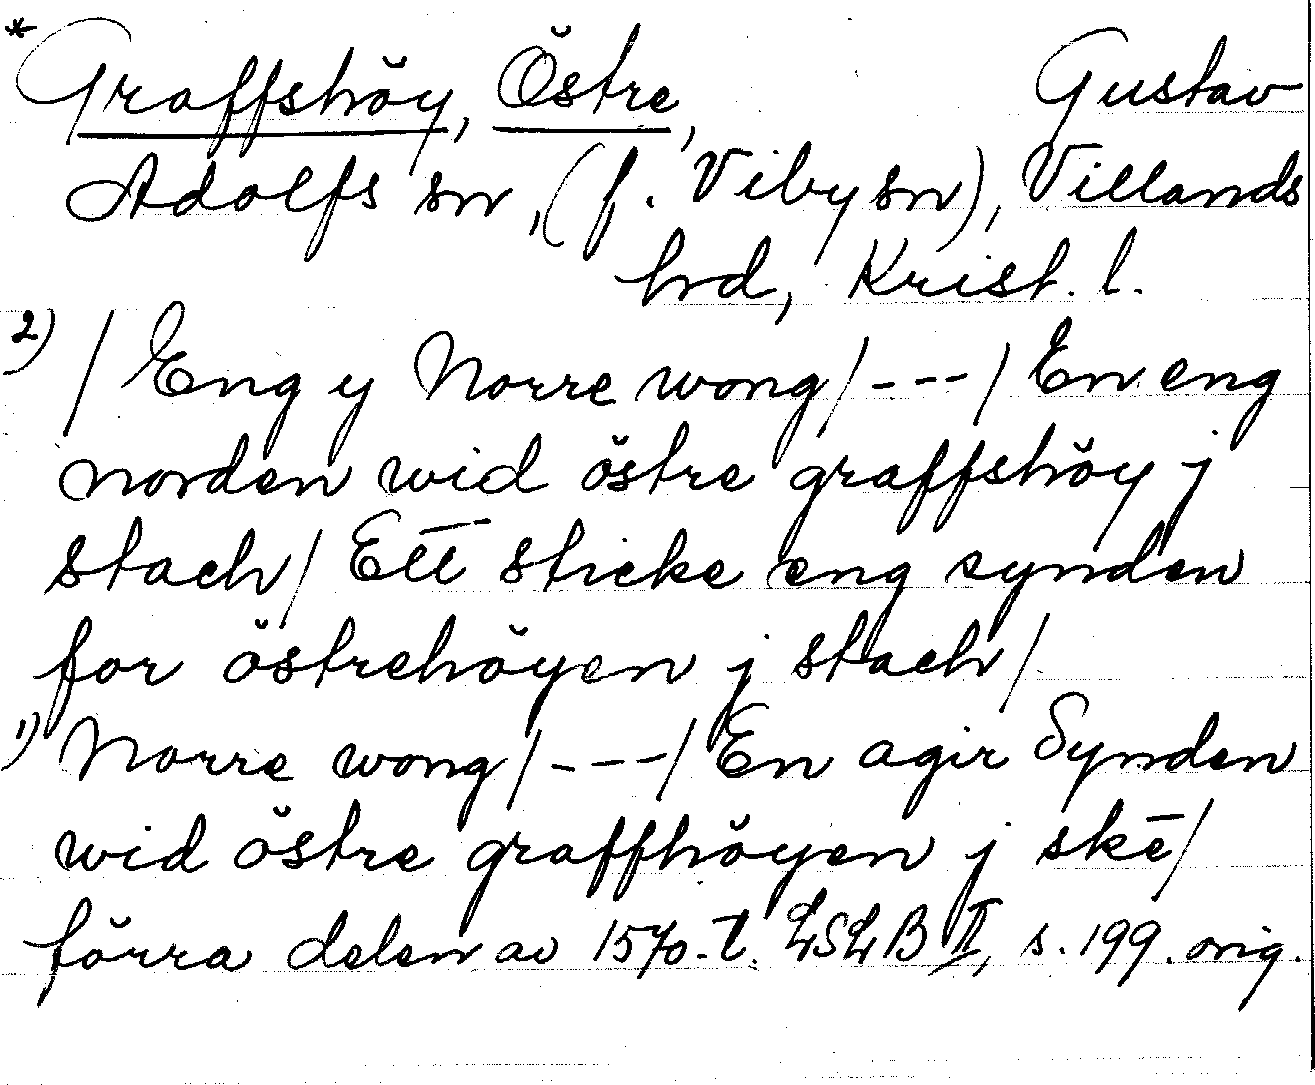 * Graffshöy, Östre, Gustav
Adolfs sn, (f. Viby sn), Villands
hrd, Krist. l.
2) / Eng y Norre wong / - - - / En eng
norden wid östre graffshöy j
stach / Ett sticke eng synden
for östrehöyen j stach /
1) Norre wong / - - - / En agir Synden
wid östre graffhöyen j skē /
förra delen av 1570-t. LSLB II, s. 199. orig.